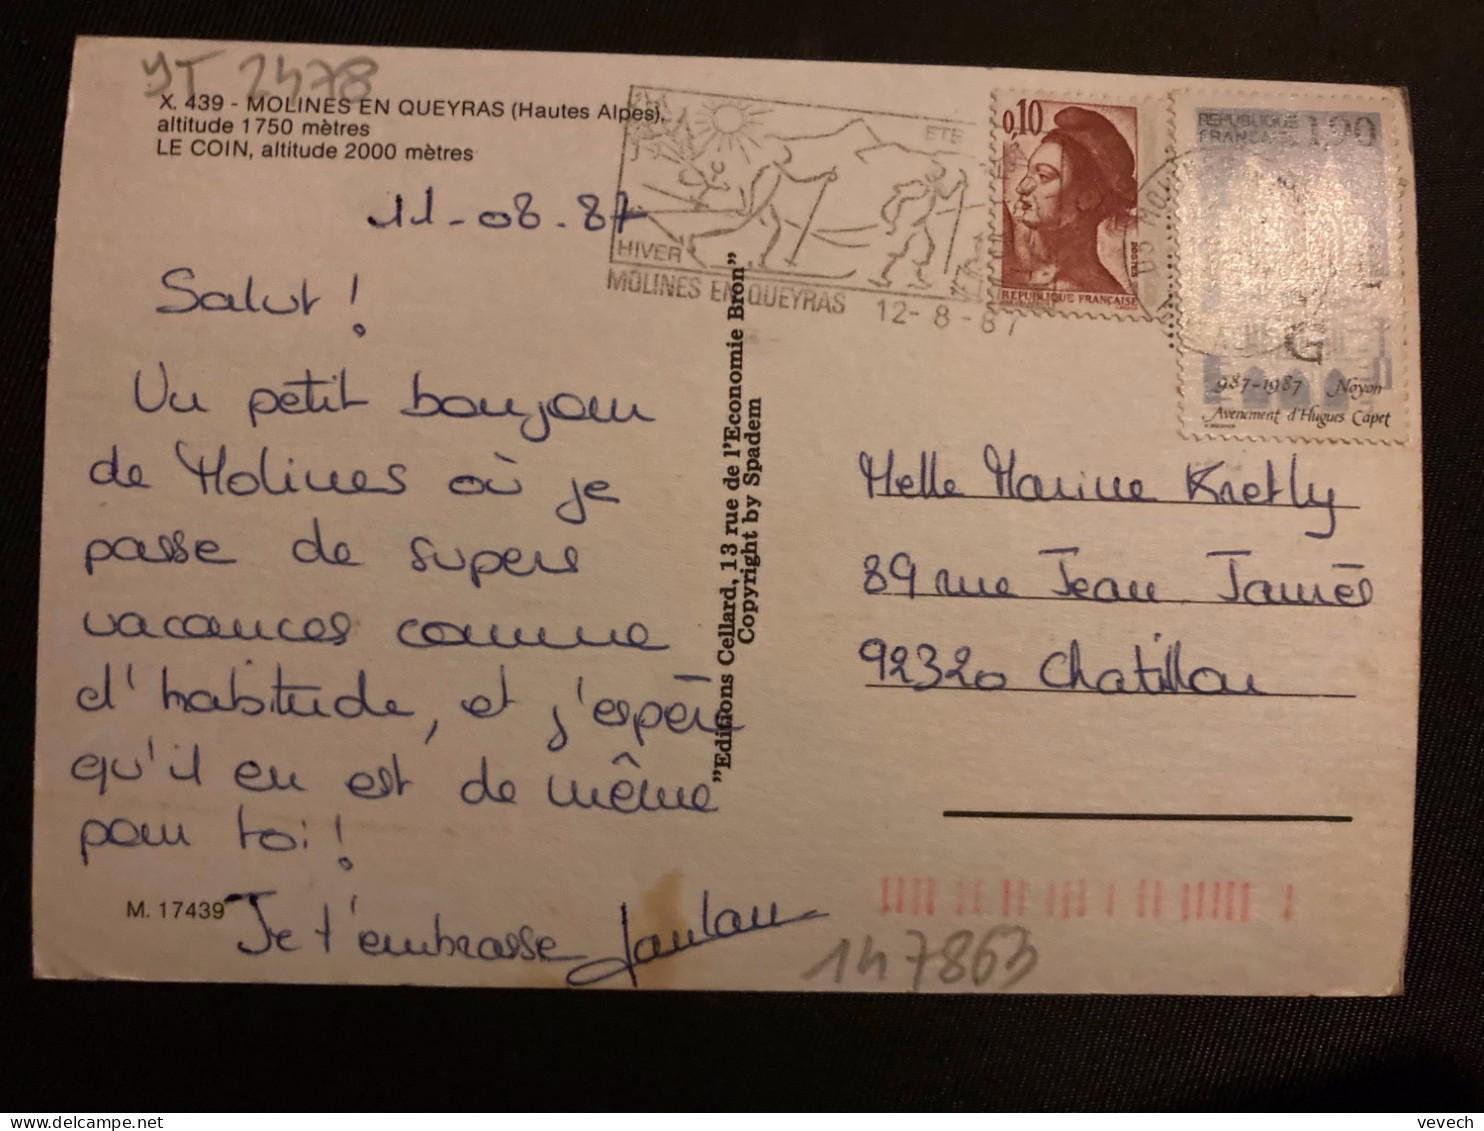 YT 2478
X. 439 - MOLINES EN QUEYRAS (Hautes Alpes),
altitude 1750 mètres
LE COIN, altitude 2000 mètres
11-08-87
Salut !
Un petit bonjour
de Molines où je
passe de supers
vacances comme
d'habitude, et j'espère
qu'il en est de même
pour toi !
Je t'embrasse
M. 17439
"Editions Cellard, 13 rue de l'Economie Bron"
Copyright by Spadem
ETE
HIVER
MOLINES EN QUEYRAS 12-8-87
0,10
POSTES
REPUBLIQUE FRANÇAISE
05 MOL
REPUBLIQUE
FRANÇAISE 1,90
G
987-1987 Noyon
Avènement d'Hugues Capet
Melle Marine Kretly
89 rue Jean Jaurès
92320 Chatillon
147863
vevech